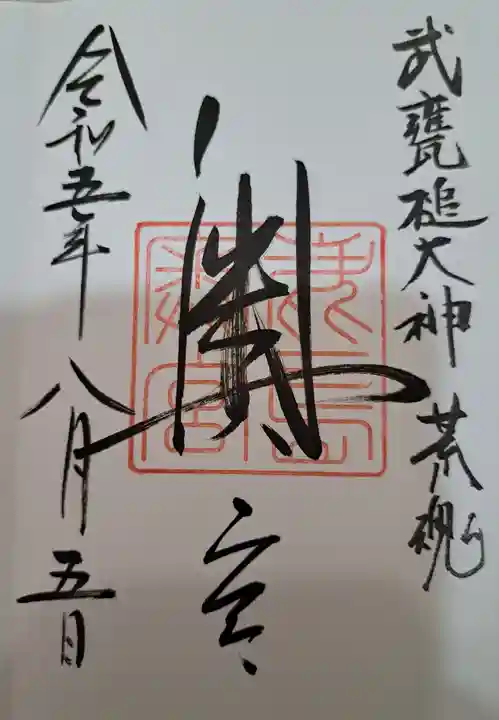 武甕槌大神 荒魂
奥宮
令和五年八月五日
鹿島
奥宮